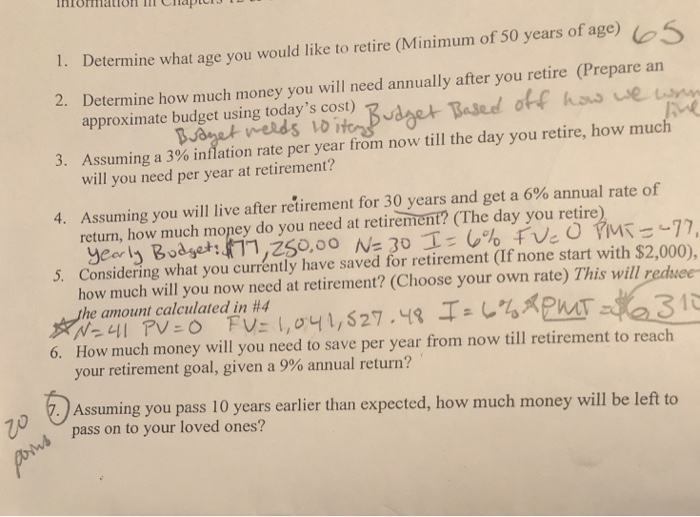 1. Determine what age you would like to retire (Minimum of 50 years of age) 65
2. Determine how much money you will need annually after you retire (Prepare an
approximate budget using today's cost) Budget Based off how we wann
Budget needs 10 items live
3. Assuming a 3% inflation rate per year from now till the day you retire, how much
will you need per year at retirement?
4. Assuming you will live after retirement for 30 years and get a 6% annual rate of
return, how much money do you need at retirement? (The day you retire)
yearly Budget: $77,250.00 N=30 I=6% FV=0 PMT=-77,
5. Considering what you currently have saved for retirement (If none start with $2,000),
how much will you now need at retirement? (Choose your own rate) This will reduce
the amount calculated in #4
N=41 PV=0 FV=1,041,527.48 I=6% PMT=$6310
6. How much money will you need to save per year from now till retirement to reach
your retirement goal, given a 9% annual return?
7. Assuming you pass 10 years earlier than expected, how much money will be left to
20 points
pass on to your loved ones?